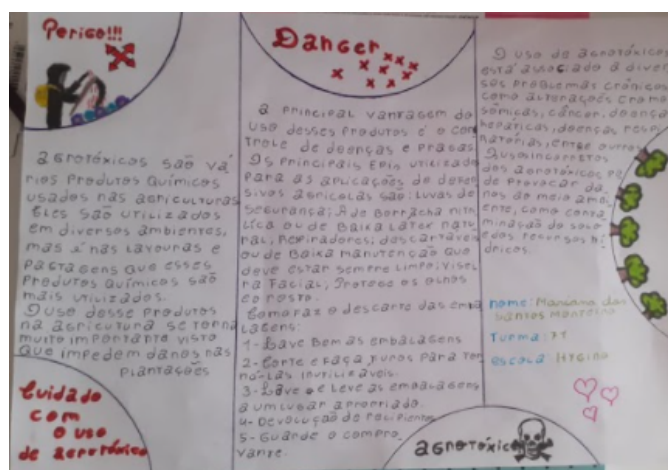 Perigo!!!
agrotóxicos são vá
rios produtos químicos
usados nas agriculturas
Eles são utilizados
em diversos ambientes,
mas é nas lavouras e
pastagens que esses
produtos químicos são
mais utilizados.
O uso desse produtos
na agricultura se torna
muito importante visto
que impedem danos nas
plantações
Cuidado
com
o uso
de agrotóxico
Danger
a principal vantagem do
uso desses produtos é o con
trole de doenças e pragas
Os principais EPIs utilizado
para as aplicações de defen
sivos agrícolas são: Luvas de
segurança; A de Borracha nitri
lica ou de Baixa Latex natu
ral, Respiradores; descartáveis
ou de Baixa manutenção que
deve estar sempre limpo; visei
ra Facial; Protege os olhos
e o rosto.
o descarte das emba
lagens:
1- Lave Bem as embalagens
2- Corte e faça furos para tor
ná-las inutilizáveis.
3- Lave e Leve as embalagens
a um lugar apropriado.
4- Devolução de recipientes
5- Guarde o compro
vante.
agrotóxico
O uso de agrotóxicos
está associado à diver
sos problemas crônicos
como alterações cromo
sômicas, câncer, doença
hepáticas, doenças respi
ratórias, entre outros
Usos incorretos
dos agrotóxicos po
de provocar da
nos ao meio ambi
ente, como conta
minação do solo
e dos recursos hí
dricos.
nome: Mariana dos
Santos Monteiro
Turma: 71
escola: Hygino